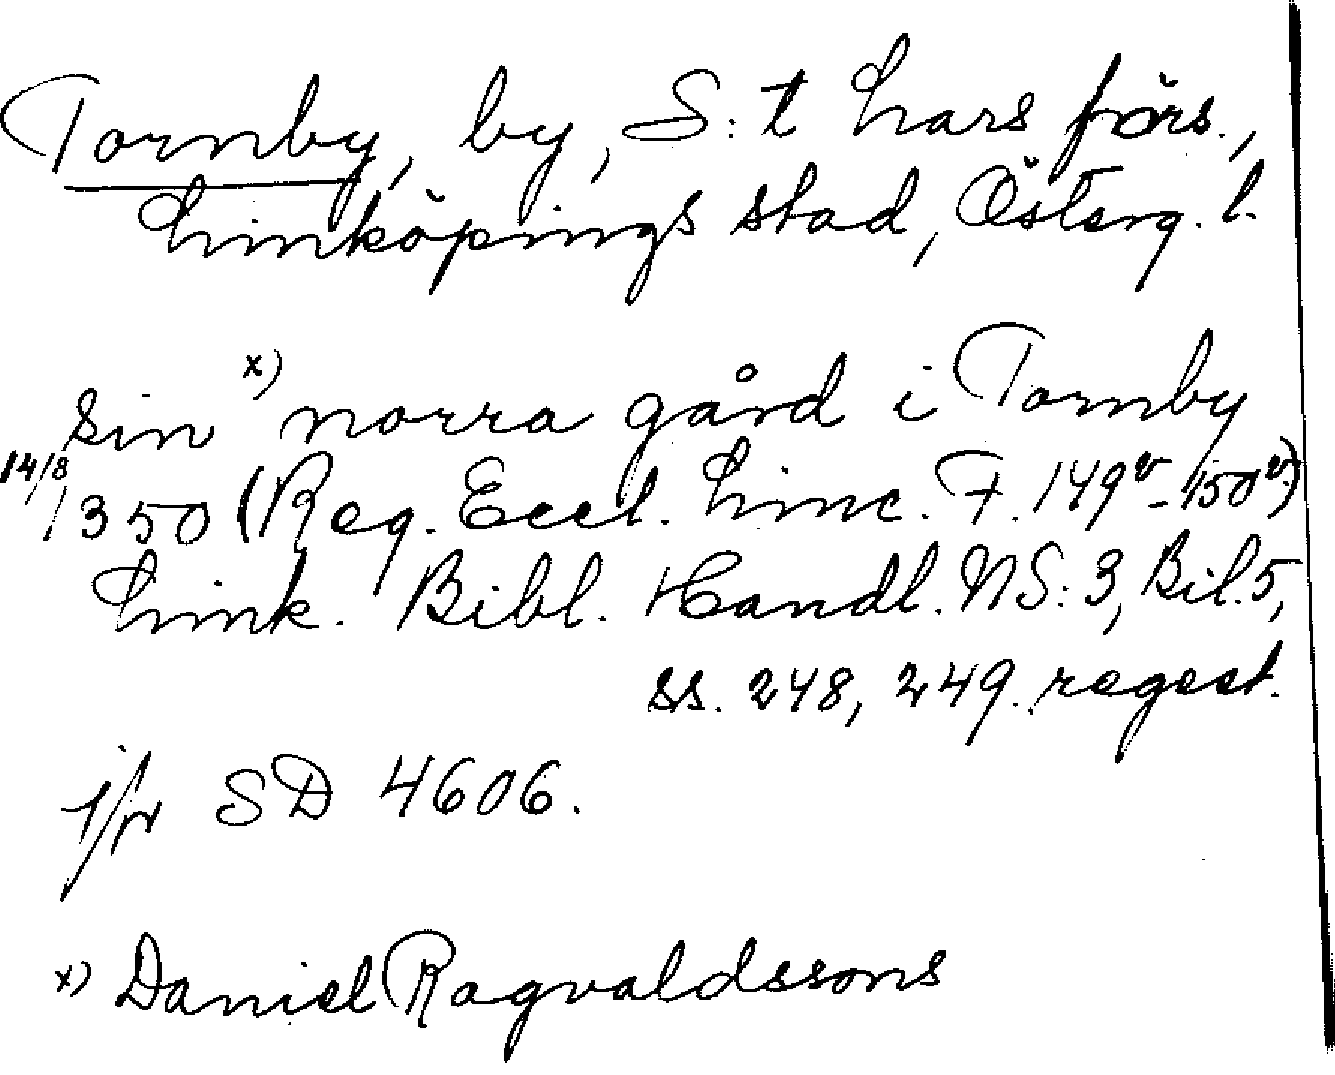 Tornby, by, S:t Lars förs.,
Linköpings stad, Österg. l.
sin x) norra gård i Tornby
14/8 1350 (Reg. Eccl. Linc. F. 149v-150v)
Link. Bibl. Handl. NS:3, Bil.5,
ss. 248, 249. regest.
SD 4606.
x) Daniel Ragvaldssons